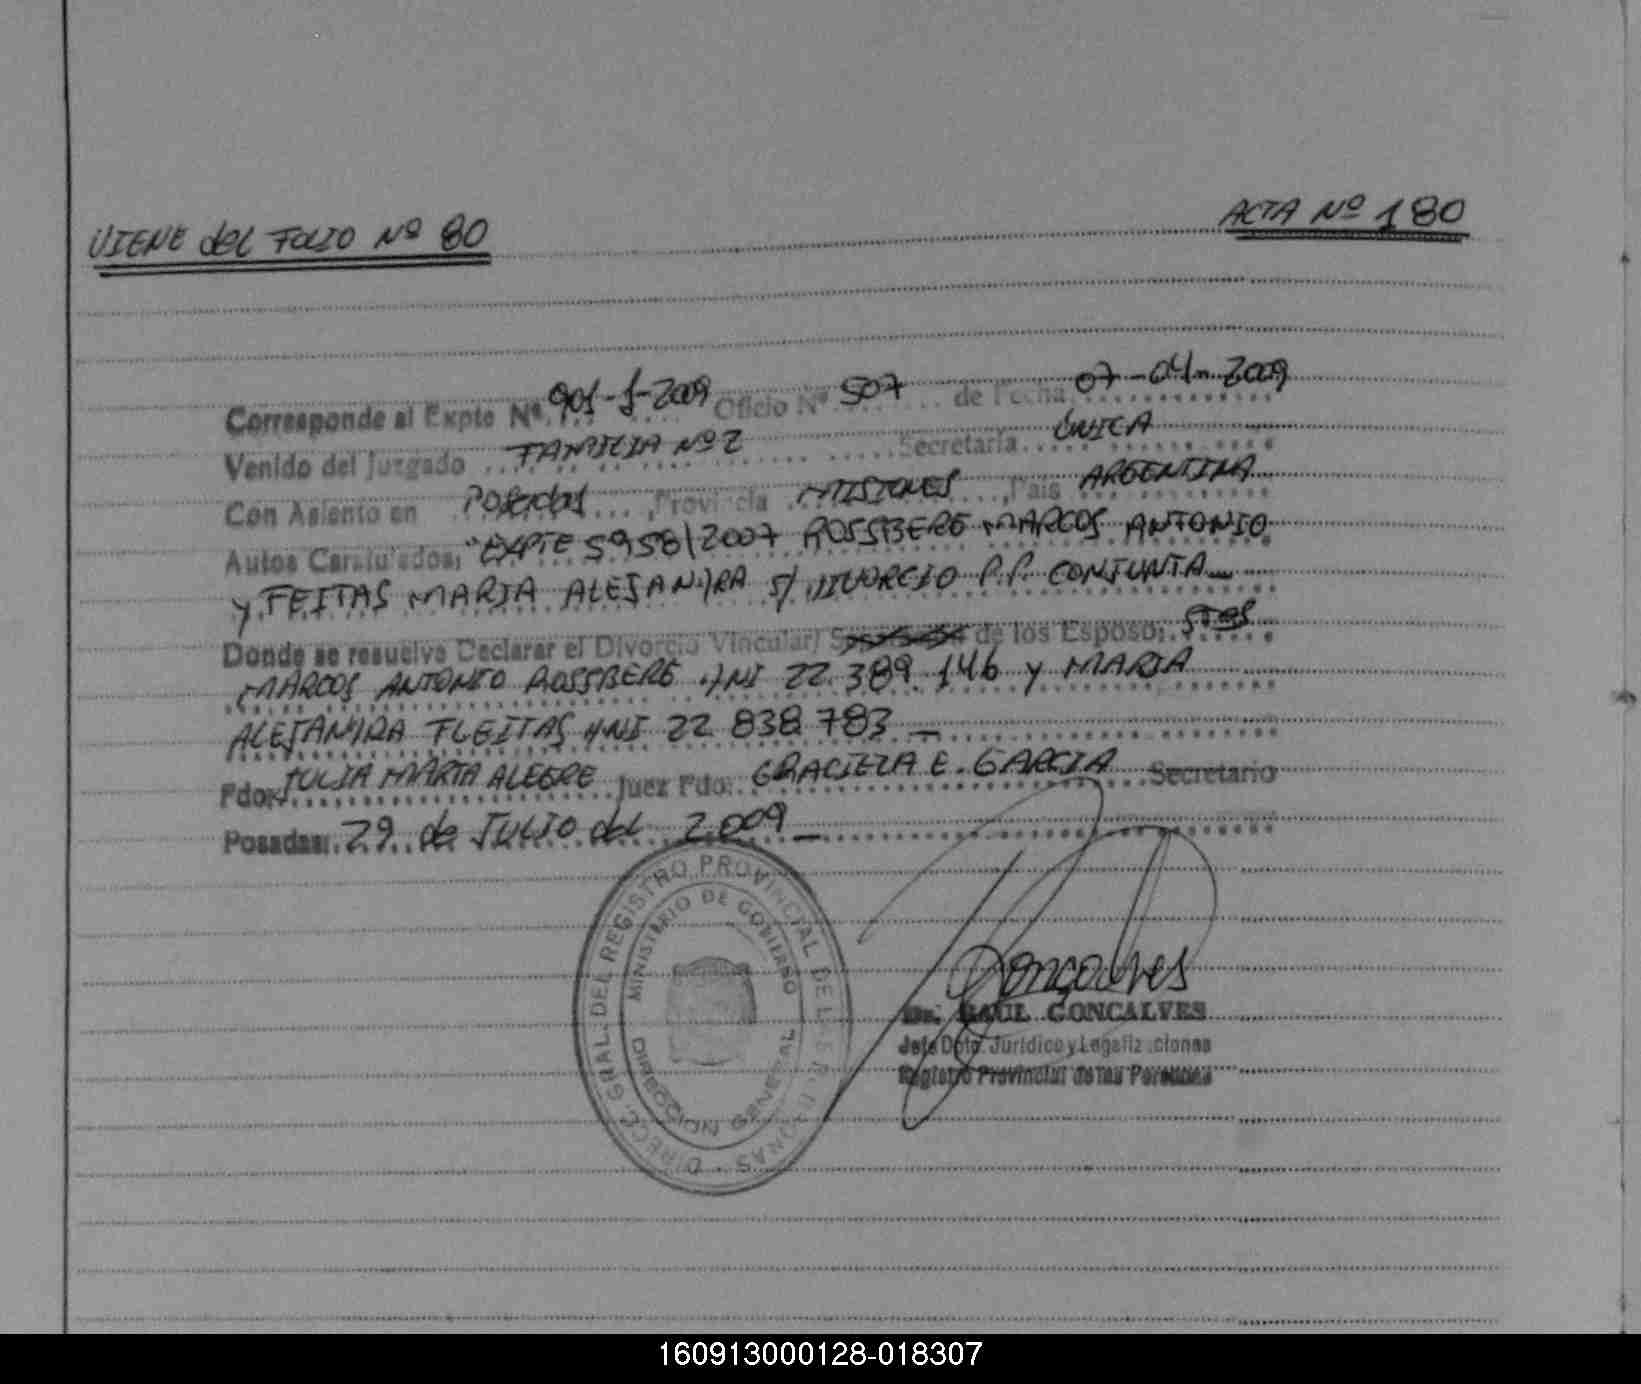 VIENE del FOLIO Nº 80
ACTA Nº 180
Corresponde al Expte Nº 901-J-2009 Oficio Nº 507 de Fecha 07-04-2009
Venido del Juzgado FAMILIA Nº 2 Secretaria ÚNICA
Con Asiento en Posadas, Provincia MISIONES, Pais ARGENTINA
Autos Caratulados: "EXPTE 5958/2007 ROSSBERE MARCOS ANTONIO
y FEITAS MARIA ALEJANDRA s/ DIVORCIO P.P. CONJUNTA
Donde se resuelve Declarar el Divorcio Vincular) de los Esposo:
MARCOS ANTONIO ROSSBERE DNI 22.389.146 y MARIA
ALEJANDRA FLEITAS DNI 22 838 783
Fdo: JULIA MARTA ALEGRE Juez Fdo: GRACIELA E. GARCIA Secretario
Posadas: 29 de JULIO del 2.009
DIRECC. GRAL. DEL REGISTRO PROVINCIAL DE LAS PERSONAS
MINISTERIO DE GOBIERNO
DIRECCION GENERAL
Gonçalves
Dr. RAUL GONCALVES
Jefe Dpto. Jurídico y Legalizaciones
Registro Provincial de las Personas
160913000128-018307